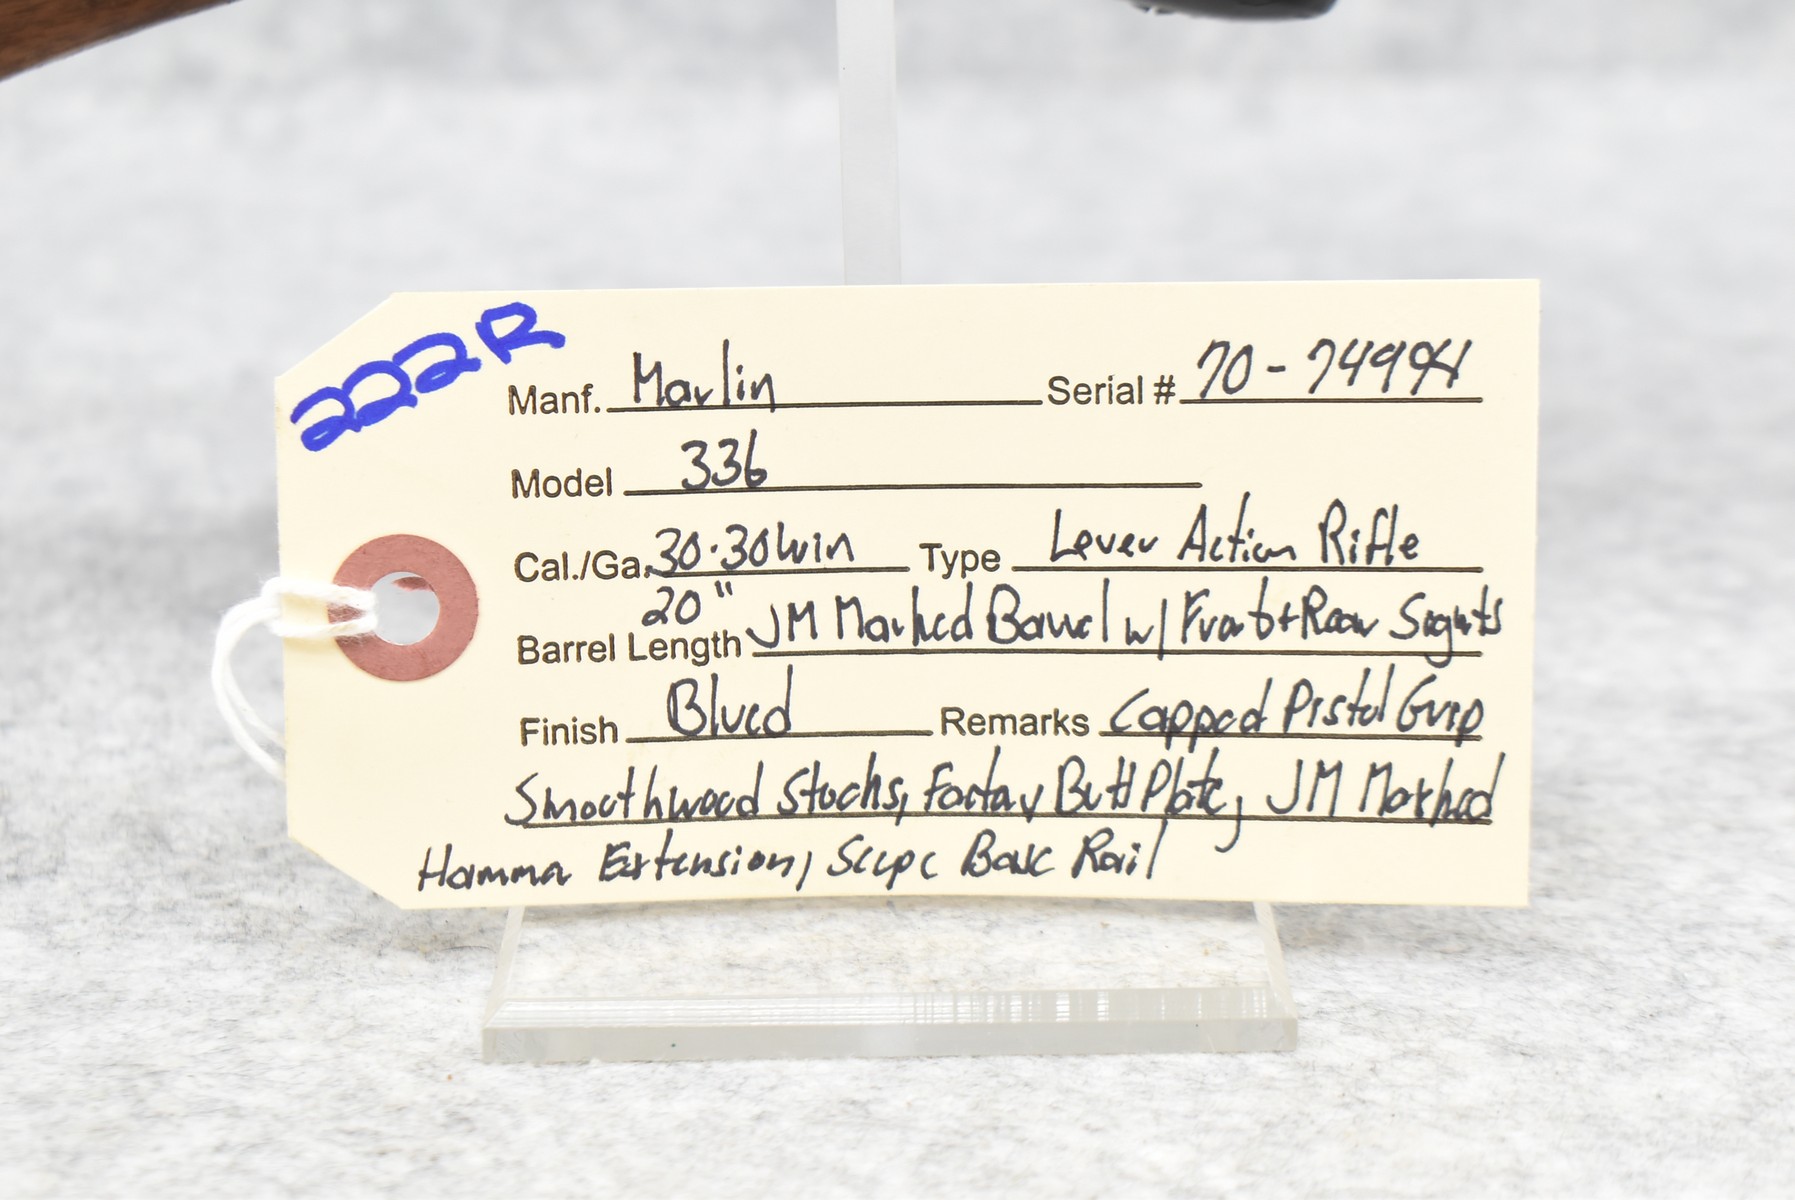 222R
Manf. Marlin Serial # 70-74994
Model 336
Cal./Ga. 30-30 Win Type Lever Action Rifle
20"
Barrel Length JM Marked Barrel w/ Front + Rear Sights
Finish Blued Remarks Capped Pistol Grip
Smooth wood Stocks, Factory Butt Plate, JM Marked
Hammer Extension, Scope Base Rail